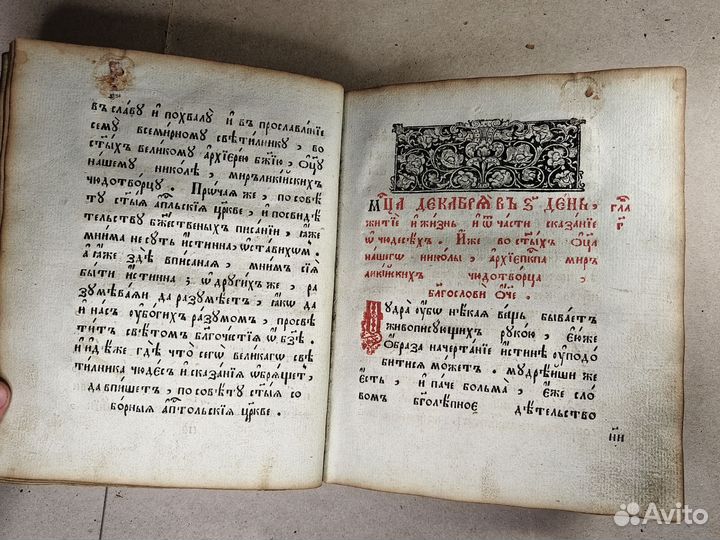 въ славꙋ и҆ похвалꙋ и҆ въ прославле́нїе
семꙋ̀ всеми́рномꙋ свѣти́лникꙋ, во
ст҃ы́хъ вели́комꙋ а҆рхїере́ю бж҃їю, ѻ҆ц҃ꙋ̀
на́шемꙋ нико́лѣ, мѷрълики́искихъ
чюдотво́рцꙋ. Про́чаѧ же, по совѣ́
тꙋ ст҃ы́ѧ а҆пⷭ҇льскїѧ цр҃кве, и҆ по свидѣ́
тельствꙋ бж҃е́ственыхъ писа́нїи, ꙗ҆̀же
мни́ма не сꙋ́ть и҆́стинна, ѡ҆ста́вихѡм꙽.
а҆ ꙗ҆̀же здѣ̀ впи́санаѧ, мни́мъ сїѧ̀
бы́ти и҆́стинна; ѡ҆ дрꙋги́хъ же, ра
зꙋмѣва́ѧи да разꙋмѣ́етъ, ꙗ҆́кѡ да
и҆ на́съ ᲂу҆бо́гихъ ра́зꙋмомъ, просвѣ
ти́тъ свѣ́томъ бл҃гоче́стїѧ ѡ҆ бз҃ѣ.
и҆ и҆дѣ́же гдѣ̀ что̀ сегѡ̀ вели́кагѡ свѣ
ти́лника чюде́съ и҆ сказа́нїѧ ѡ҆брѧ́щетъ,
да впи́шетъ, по совѣ́тꙋ ст҃ы́ѧ со
бо́рныѧ а҆пⷭ҇тольскїѧ цр҃кве.
мⷭ҇ца декабрѧ въ ѕ҃ де́нь,
житїѐ и҆ жи́знь и҆ ѿ ча́сти сказа́нїе
ѡ҆ чюдесѣ́хъ. И҆́же во ст҃ы́хъ ѻ҆ц҃а̀
на́шегѡ нико́лы, а҆рхїепⷭ҇кпа мѷр
лики́йскихъ чюдотво́рца,
бл҃гословѝ ѻ҆́ч҃е.
гла
г҃
Мꙋ́дра ᲂу҆́бѡ нѣ́каѧ ве́щь быва́етъ
живопи́сꙋющихъ рꙋко́ю, є҆́юже
ѻ҆́браза начерта́нїе и҆́стинѣ ᲂу҆подо́
битисѧ мо́жетъ. мꙋдрѣ́йши же
є҆́сть, и҆ па́че бо́льма, є҆́же сло́
вомъ бг҃олѣ́пное дѣ́тельство
н҃и
Avito